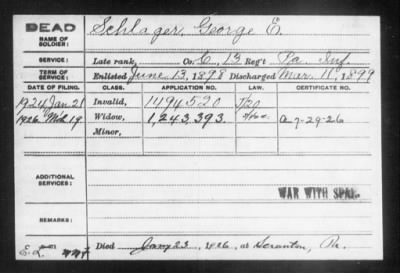 DEAD Schlager, George E.
NAME OF SOLDIER:
SERVICE: Late rank, Co. E, 13 Reg't Pa. Inf.
TERM OF SERVICE: Enlisted June 13, 1898 Discharged Mar. 11, 1899
DATE OF FILING. CLASS. APPLICATION NO. LAW. CERTIFICATE NO.
1924 Jan 28 Invalid, 1494520
1926 Mch 19 Widow, 1,243,393. a 7-29-26
Minor,
ADDITIONAL SERVICES:
WAR WITH SPAIN
REMARKS:
Died Jany 23, 1926, at Scranton, Pa.